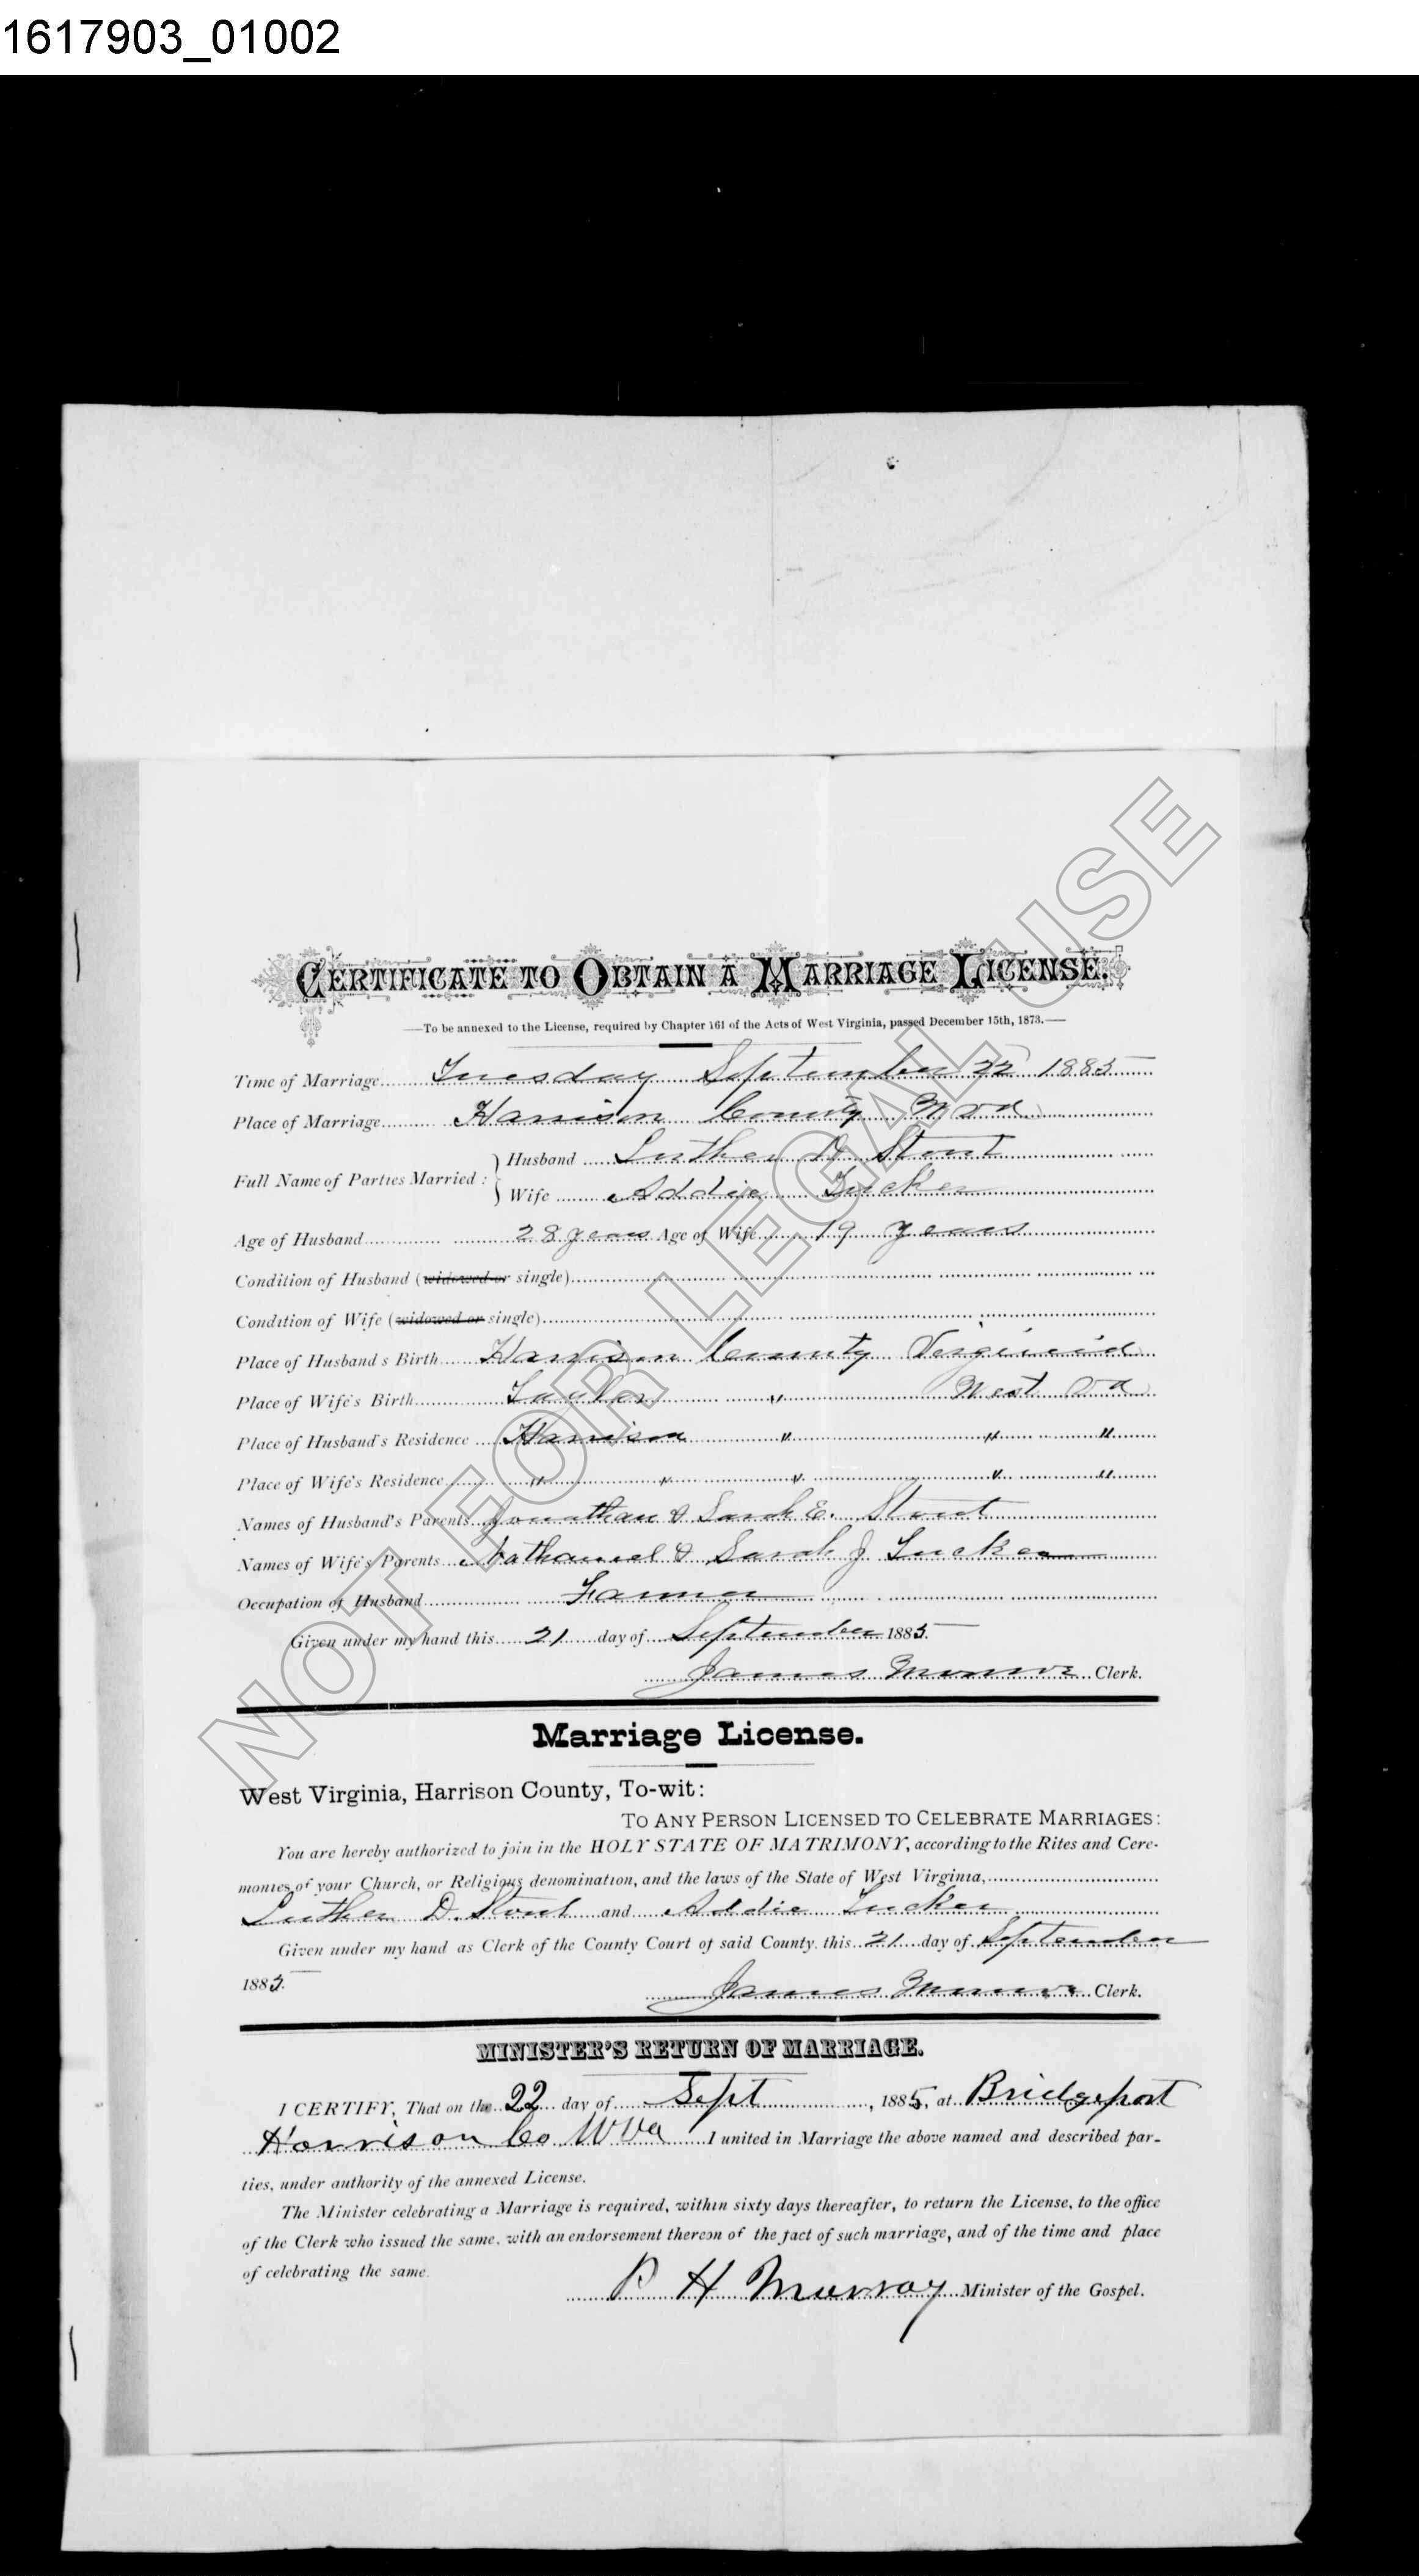 1617903_01002
CERTIFICATE TO OBTAIN A MARRIAGE LICENSE.
—To be annexed to the License, required by Chapter 161 of the Acts of West Virginia, passed December 15th, 1873.—
Time of Marriage Tuesday September 22 1885
Place of Marriage Harrison County W Va
Full Name of Parties Married: Husband Luther D. Stout
Wife Addie Tucker
Age of Husband 28 years Age of Wife 19 years
Condition of Husband (widowed or single)
Condition of Wife (widowed or single)
Place of Husband's Birth Harrison County Virginia
Place of Wife's Birth Taylor " West Va
Place of Husband's Residence Harrison " " "
Place of Wife's Residence " " " " "
Names of Husband's Parents Jonathan & Sarah E. Stout
Names of Wife's Parents Nathaniel & Sarah J Tucker
Occupation of Husband Farmer
Given under my hand this 21 day of September 1885.
James Monroe Clerk.
Marriage License.
West Virginia, Harrison County, To-wit:
TO ANY PERSON LICENSED TO CELEBRATE MARRIAGES:
You are hereby authorized to join in the HOLY STATE OF MATRIMONY, according to the Rites and Cere-
monies of your Church, or Religious denomination, and the laws of the State of West Virginia,
Luther D. Stout and Addie Tucker
Given under my hand as Clerk of the County Court of said County, this 21 day of September
1885.
James Monroe Clerk.
MINISTER'S RETURN OF MARRIAGE.
I CERTIFY, That on the 22 day of Sept, 1885, at Bridgeport
Harrison Co W Va I united in Marriage the above named and described par-
ties, under authority of the annexed License.
The Minister celebrating a Marriage is required, within sixty days thereafter, to return the License, to the office
of the Clerk who issued the same, with an endorsement thereon of the fact of such marriage, and of the time and place
of celebrating the same.
P H Murray Minister of the Gospel.
NOT FOR LEGAL USE